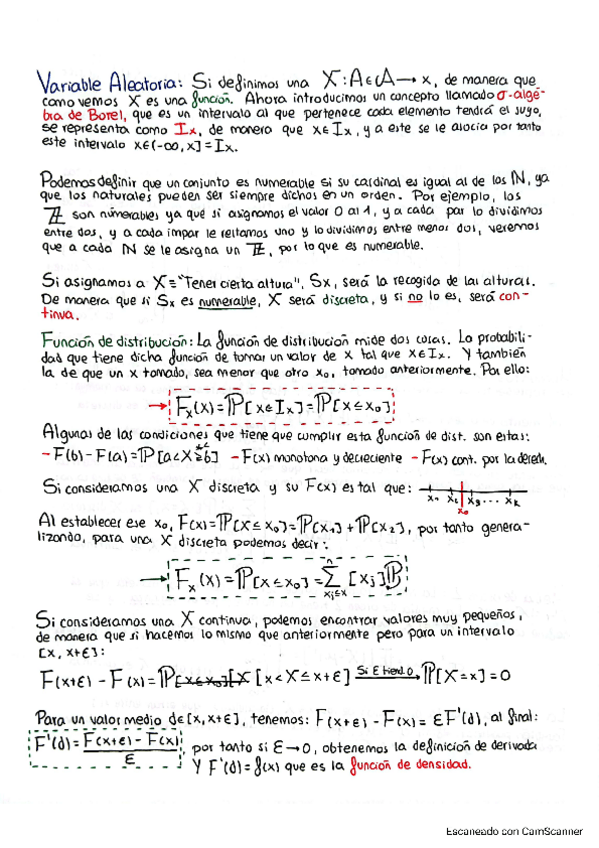 Variable Aleatoria: Si definimos una X: A∈𝒜 → x, de manera que
como vemos X es una función. Ahora introducimos un concepto llamado σ-álge-
bra de Borel, que es un intervalo al que pertenece cada elemento tendrá el suyo,
se representa como Ix, de manera que x∈Ix, y a este se le asocia por tanto
este intervalo x∈(-∞, x] = Ix.
Podemos definir que un conjunto es numerable si su cardinal es igual al de los ℕ, ya
que los naturales pueden ser siempre dichos en un orden. Por ejemplo, los
ℤ son numerables ya que si asignamos el valor 0 al 1, y a cada par lo dividimos
entre dos, y a cada impar le restamos uno y lo dividimos entre menos dos, veremos
que a cada ℕ se le asigna un ℤ, por lo que es numerable.
Si asignamos a X="Tener cierta altura", Sx, será la recogida de las alturas.
De manera que si Sx es numerable, X será discreta, y si no lo es, será con-
tinua.
Función de distribución: La función de distribución mide dos cosas. La probabili-
dad que tiene dicha función de tomar un valor de x tal que x∈Ix. Y también
la de que un x tomado, sea menor que otro x₀, tomado anteriormente. Por ello:
→ Fx(x) = ℙ[x∈Ix] = ℙ[x≤x₀]
Algunas de las condiciones que tiene que cumplir esta función de dist. son estas:
- F(b) - F(a) = ℙ[a<X≤b] - F(x) monotona y decreciente - F(x) cont. por la derecha.
Si consideramos una X discreta y su F(x) es tal que: x₁ x₂ x₃ ... xk
x₀
Al establecer ese x₀, F(x) = ℙ[X≤x₀] = ℙ[x₁] + ℙ[x₂], por tanto genera-
lizando, para una X discreta podemos decir:
→ Fx(x) = ℙ[x≤x₀] = Σ [xj]ℙ
n
xj≤x
Si consideramos una X continua, podemos encontrar valores muy pequeños,
de manera que si hacemos lo mismo que anteriormente pero para un intervalo
[x, x+ε]:
F(x+ε) - F(x) = ℙ[x<X≤x+ε] Si ε tiend. 0 → ℙ[X=x] = 0
Para un valor medio de [x, x+ε], tenemos: F(x+ε) - F(x) = εF'(∂), al final:
F'(∂) = F(x+ε) - F(x) / ε, por tanto si ε→0, obtenemos la definicion de derivada
Y F'(∂) = f(x) que es la función de densidad.
Escaneado con CamScanner